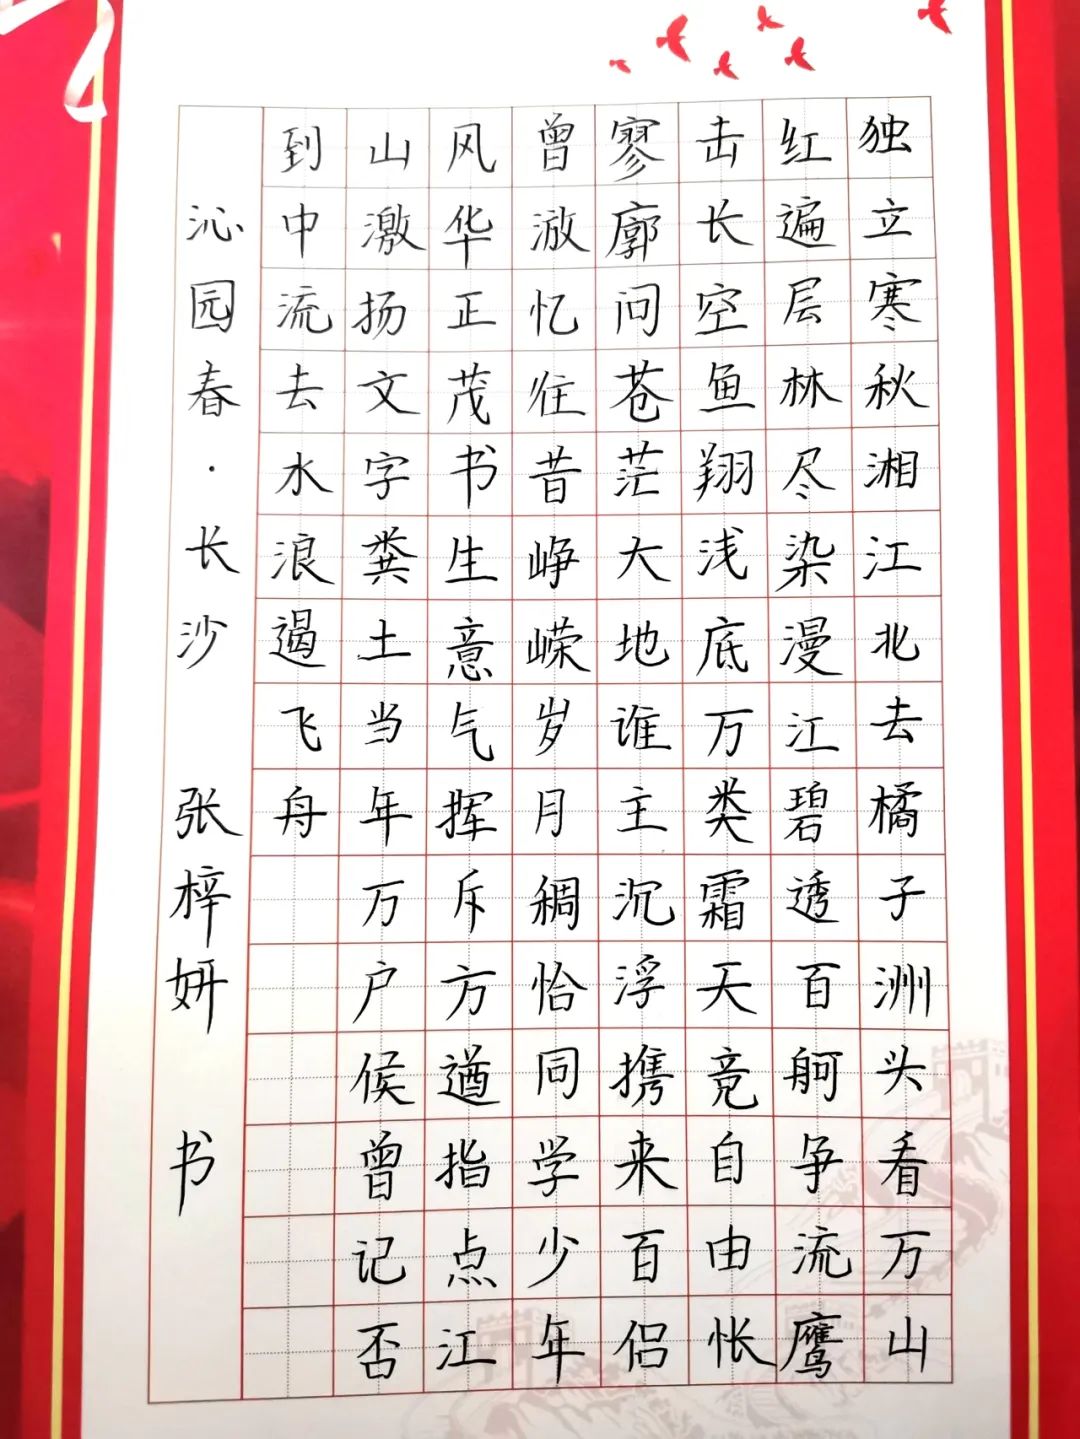 独立寒秋湘江北去橘子洲头看万山
红遍层林尽染漫江碧透百舸争流鹰
击长空鱼翔浅底万类霜天竞自由怅
寥廓问苍茫大地谁主沉浮携来百侣
曾游忆往昔峥嵘岁月稠恰同学少年
风华正茂书生意气挥斥方遒指点江
山激扬文字粪土当年万户侯曾记否
到中流去水浪遏飞舟
沁园春·长沙 张梓妍 书